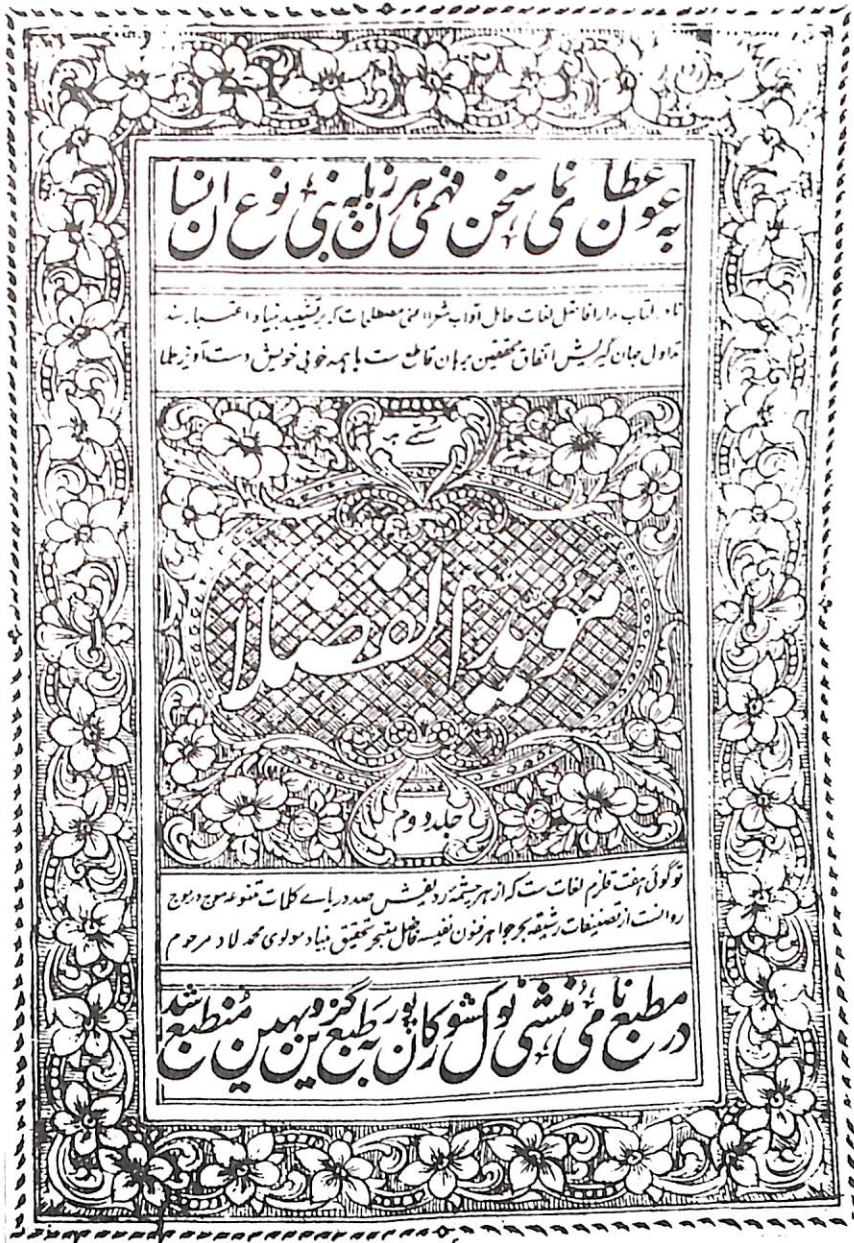 به عون عطا نمای سخن فهمی هر زبان به بنی نوع انسان
نادر کتاب مدار افاضل لغات حامل آداب شعرا معنی مصطلحات که بر تشیید بنیاد اعتبار سند
تداول جهان گیریش اتفاق محققین برهان قاطع ست با همه خوبی خویش دست آویز علما
مسمے بہ
موید الفضلا
جلد دوم
تو گوئی هفت قلزم لغات ست که از هر چشمهٔ ردیفش صد دریاے کلمات متنوعه موج در موج
روانست از تصنیفات رشیقه بحر جواهر فنون نفیسه فاضل متبحر تحقیق بنیاد مولوی محمد لاد مرحوم
در مطبع نامی منشی نولکشور کانپور به طبع گزین و بهین منطبع شد